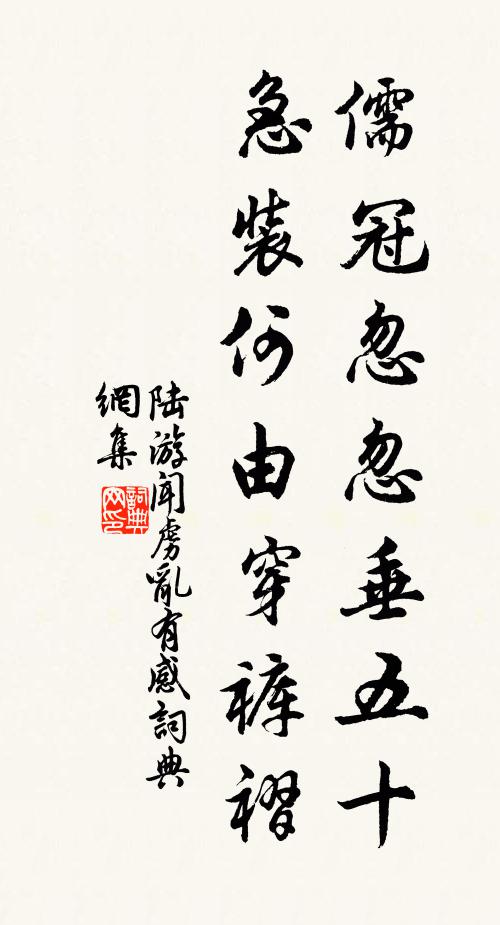 儒冠忽忽垂五十
急装何由穿裤褶
陆游闻虏亂有感詞典
網集
詞典
网印